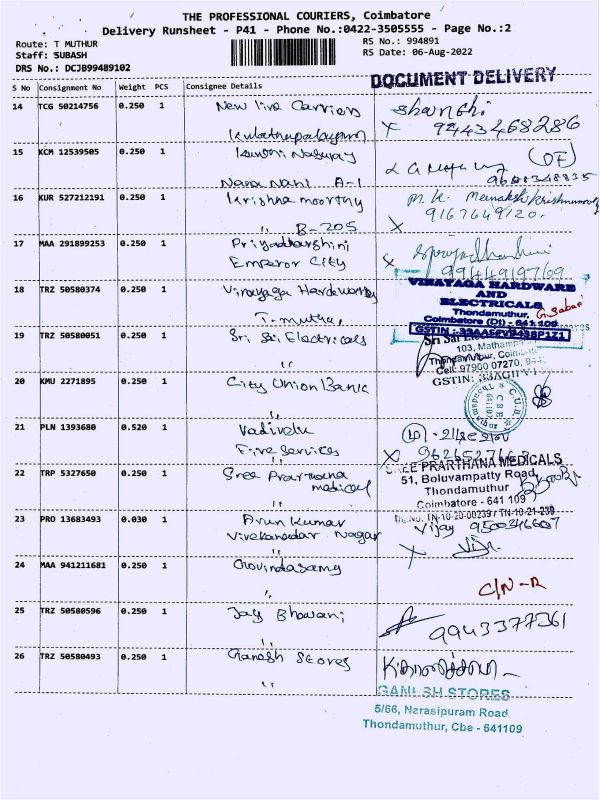 THE PROFESSIONAL COURIERS, Coimbatore
Delivery Runsheet - P41 - Phone No.:0422-3505555 - Page No.:2
Route: T MUTHUR
RS No.: 994891
Staff: SUBASH
RS Date: 06-Aug-2022
DRS No.: DCJB99489102
DOCUMENT DELIVERY
S No Consignment No Weight PCS Consignee Details
14 TCG 50214756 0.250 1 New line Carriers Shanthi
Kulathupalayam X 9443468286
15 KCM 12539505 0.250 1
Nana Nani A-1
16 KUR 527212191 0.250 1 Krishna moorthy M.K. Meenakshi Krishnamoorthy
" B-205 X 9167649120.
17 MAA 291899253 0.250 1 Priyadharshini
Emperor City 9944919769
18 TRZ 50580374 0.250 1 Vinayaga Hardwares
T. muthur
VINAYAGA HARDWARE
AND
ELECTRICALS
Thondamuthur,
Coimbatore (Dt) - 641 109
19 TRZ 50580051 0.250 1 Sri Sai Electricals
"
Sri Sai
103,
Thondamuthur,
Cell: 97900 07270,
GSTIN:
20 KMU 2271895 0.250 1 City Union Bank
"
C.U.B.
21 PLN 1393680 0.520 1 Vadivelu
Fire Services X
"
22 TRP 5327650 0.250 1 Sree Prarthana
medical
"
SREE PRARTHANA MEDICALS
51, Boluvampatty Road,
Thondamuthur
Coimbatore - 641 109
23 PRO 13683493 0.030 1 Arun Kumar
Vivekanadar Nagar
Vijay 9500246607
X
24 MAA 941211681 0.250 1 Govindasamy
" C/N-R
25 TRZ 50580596 0.250 1 Jay Bhavani
" 9943377361
26 TRZ 50580493 0.250 1 Ganesh Stores
"
GANESH STORES
5/66, Narasipuram Road
Thondamuthur, Cbe - 641109